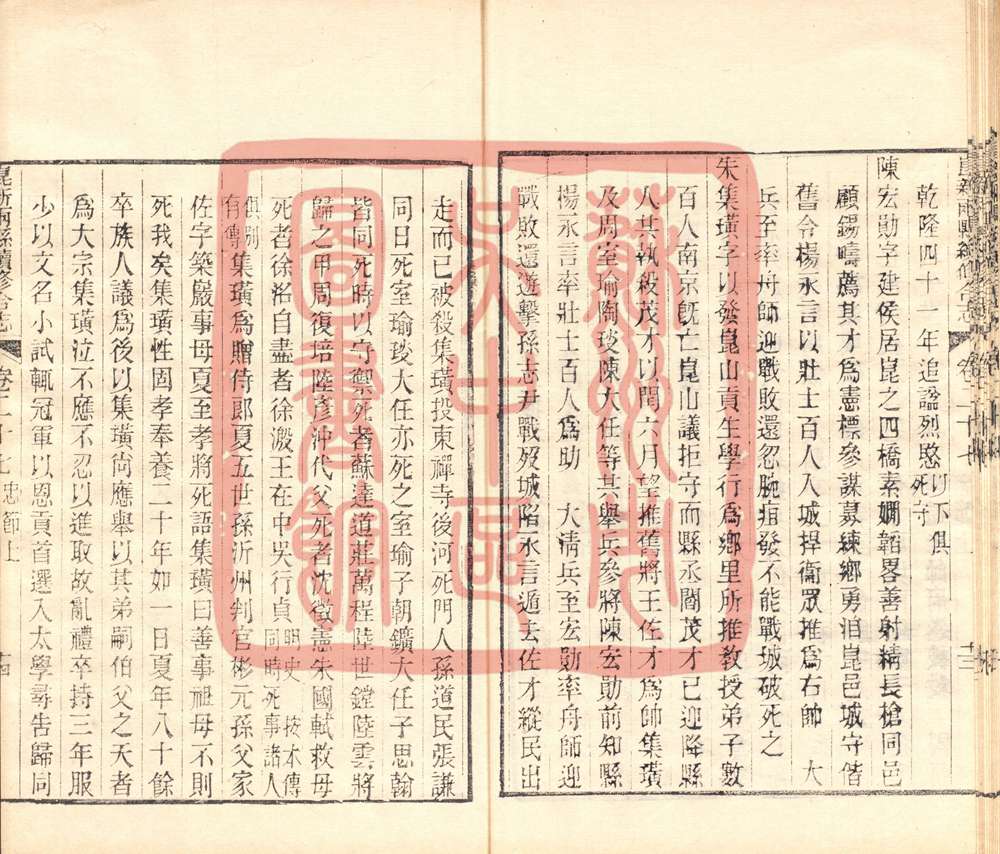 乾隆四十一年追謚烈愍以下俱死守
陳宏勛字建侯居崑之四橋素嫻韜畧善射精長槍同邑
顧錫疇薦其才爲憲標參謀募練鄉勇洎崑邑城守偕
舊令楊永言以壯士百人入城捍衞眾推爲右帥　大
兵至率舟師迎戰敗還忽腕疽發不能戰城破死之
朱集璜字以發崑山貢生學行爲鄉里所推教授弟子數
百人南京旣亡崑山議拒守而縣丞閻茂才已迎降縣
人共執殺茂才以閏六月望推舊將王佐才爲帥集璜
及周室瑜陶琰陳大任等共舉兵參將陳宏勛前知縣
楊永言率壯士百人爲助　大淸兵至宏勛率舟師迎
戰敗還遊擊孫志尹戰歿城陷永言遁去佐才縱民出
走而已被殺集璜投東禪寺後河死門人孫道民張謙
同日死室瑜琰大任亦死之室瑜子朝鑛大任子思翰
皆同死時以守禦死者蘇達道莊萬程陸世鏜陸雲將
歸之甲周復培陸彥沖代父死者沈徵憲朱國軾救母
死者徐洺自盡者徐溵王在中吳行貞明史　按本傳同時死事諸人
俱別有傳集璜爲贈侍郎夏五世孫沂州判官彬元孫父家
佐字築巖事母夏至孝將死語集璜曰善事祖母不則
死我矣集璜性固孝奉養二十年如一日夏年八十餘
卒族人議爲後以集璜尙應舉以其弟嗣伯父之夭者
爲大宗集璜泣不應不忍以進取故亂禮卒持三年服
少以文名小試輒冠軍以恩貢首選入太學尋告歸同
崑新兩縣續修合志　卷二十七　忠節上　十四
蘇州大學圖書館